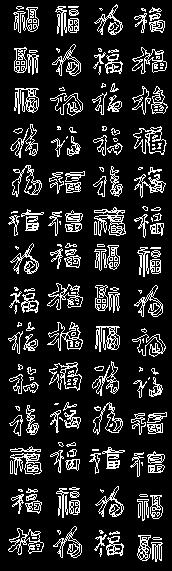 福福福福
福福福福
福福福福
福福福福
福福福福
福福福福
福福福福
福福福福
福福福福
福福福福
福福福福
福福福福
福福福福
福福福福